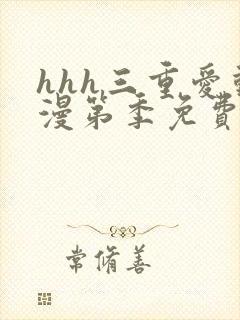 hhh三重爱
漫第季免費
常脩善